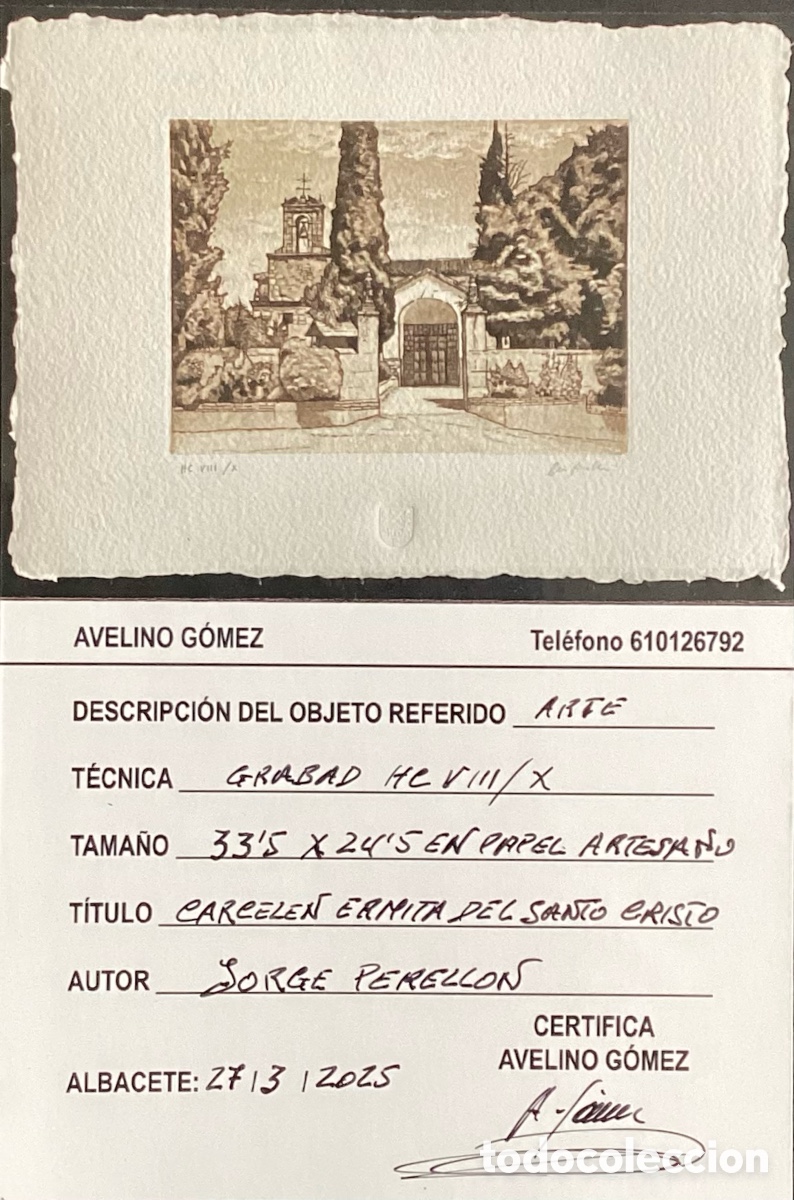 HC VIII/X
AVELINO GÓMEZ Teléfono 610126792
DESCRIPCIÓN DEL OBJETO REFERIDO ARTE
TÉCNICA GRABAD HC VIII/X
TAMAÑO 33'5 X 24'5 EN PAPEL ARTESAÑO
TÍTULO CARCELEÑ ERMITA DEL SANTO CRISTO
AUTOR JORGE PERELLON
CERTIFICA
AVELINO GÓMEZ
ALBACETE: 27/3/2025
A. Gómez
todocoleccion